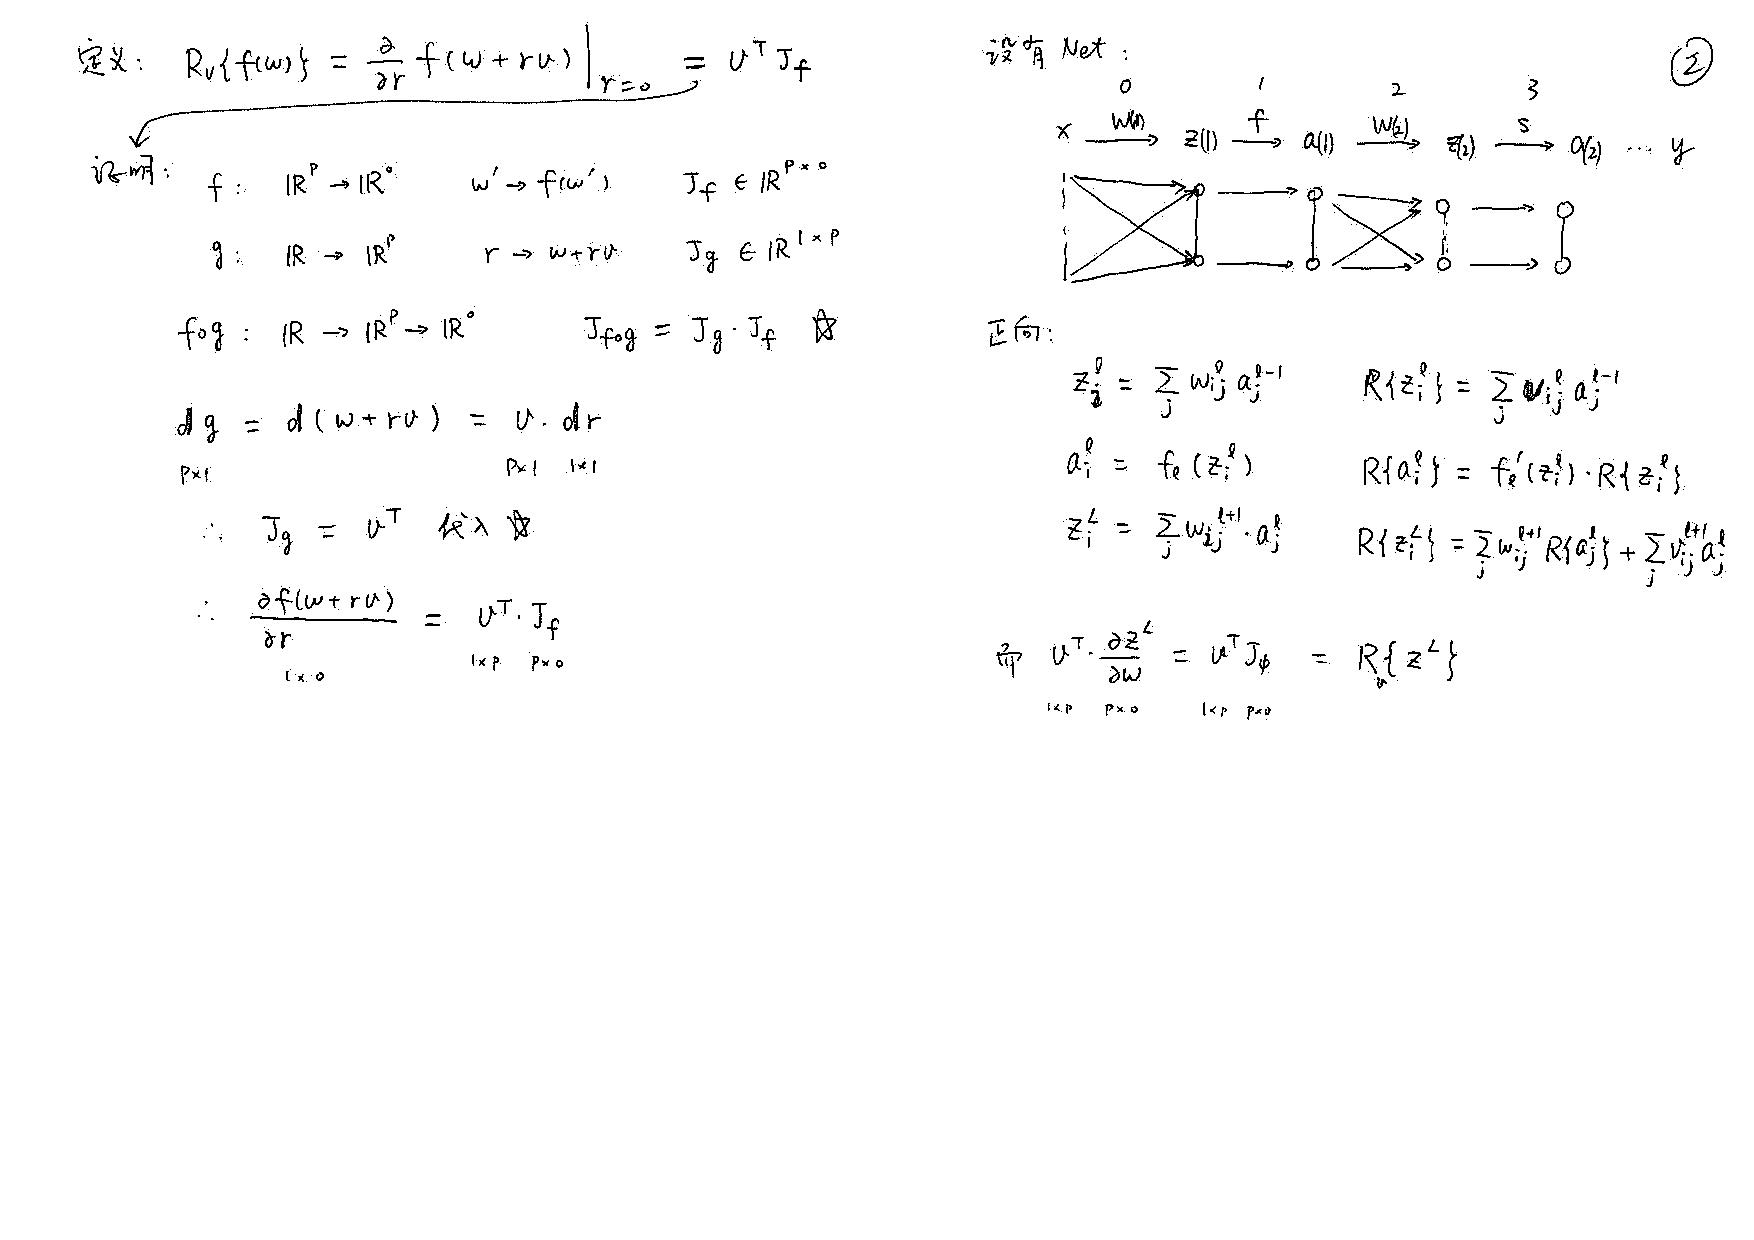 定义: R_v{f(w)} = ∂/∂r f(w+rv)|_{r=0} = v^T J_f
证明:
f: ℝ^p → ℝ^o w' → f(w') J_f ∈ ℝ^{p×o}
g: ℝ → ℝ^p r → w+rv J_g ∈ ℝ^{1×p}
f∘g: ℝ → ℝ^p → ℝ^o J_{f∘g} = J_g · J_f ☆
dg = d(w+rv) = v · dr
p×1 p×1 1×1
∴ J_g = v^T 代入 ☆
∴ ∂f(w+rv)/∂r = v^T · J_f
1×o 1×p p×o
设有 Net:
②
0 1 2 3
x →W(1) z(1) →f a(1) →W(2) z(2) →s a(2) ... y
正向:
z_i^l = Σ_j w_{ij}^l a_j^{l-1} R{z_i^l} = Σ_j v_{ij}^l a_j^{l-1}
a_i^l = f_l(z_i^l) R{a_i^l} = f_l'(z_i^l) · R{z_i^l}
z_i^L = Σ_j w_{ij}^{l+1} · a_j^l R{z_i^L} = Σ_j w_{ij}^{l+1} R{a_j^l} + Σ_j v_{ij}^{l+1} a_j^l
而 v^T · ∂z^L/∂w = v^T J_φ = R_v{z^L}
1×p p×o 1×p p×o